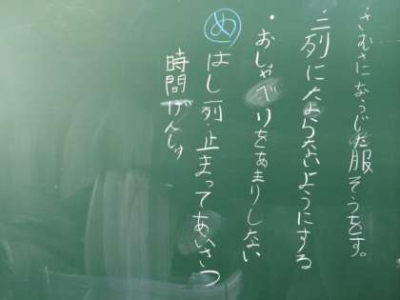 ・さむさにおうじた服そうをす。
・二列にならないようにする
・おしゃべりをあまりしない
め はし、列、止まってあいさつ
時間げんしゅ